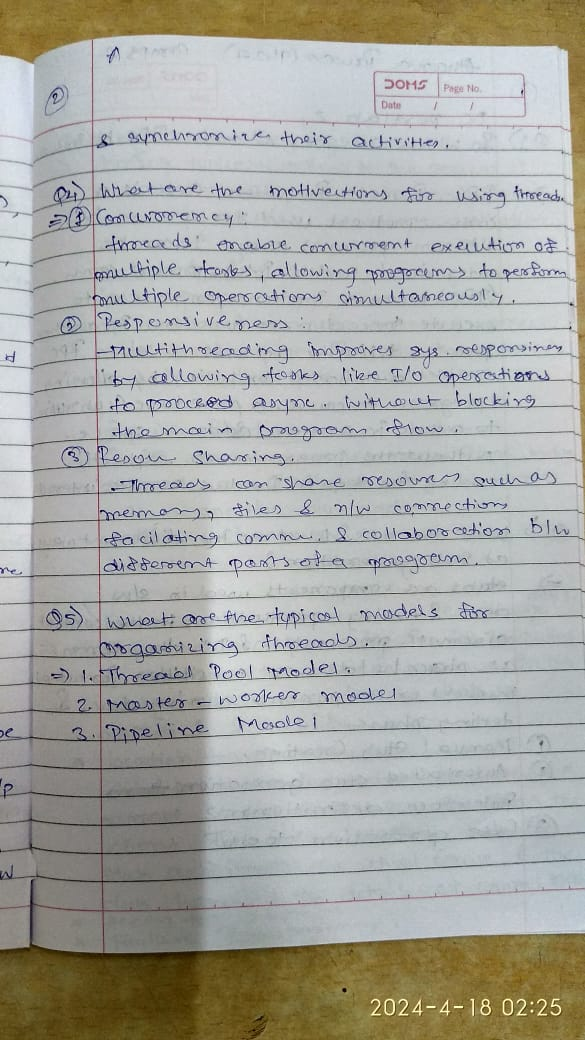 2
DOMS Page No.
Date / /
& synchronize their activities.
Q4) What are the motivections for using thread.
⇒ ① Concurrency:
threads enable concurrent execution of
multiple tasks, allowing programs to perform
multiple operations simultaneously.
② Responsiveness:
Multithreading improves sys. responsiness
by allowing tasks like I/O operations
to proceed async. without blocking
the main program flow.
③ Resou Sharing.
Threads can share resources such as
memory, files & n/w connection
facilating commu. & collaboration b/w
different parts of a program.
Q5) What are the typical models for
organizing threads.
⇒ 1. Thread Pool Model.
2. Master - Worker model
3. Pipeline Model
d
ne
pe
p
w
2024-4-18 02:25